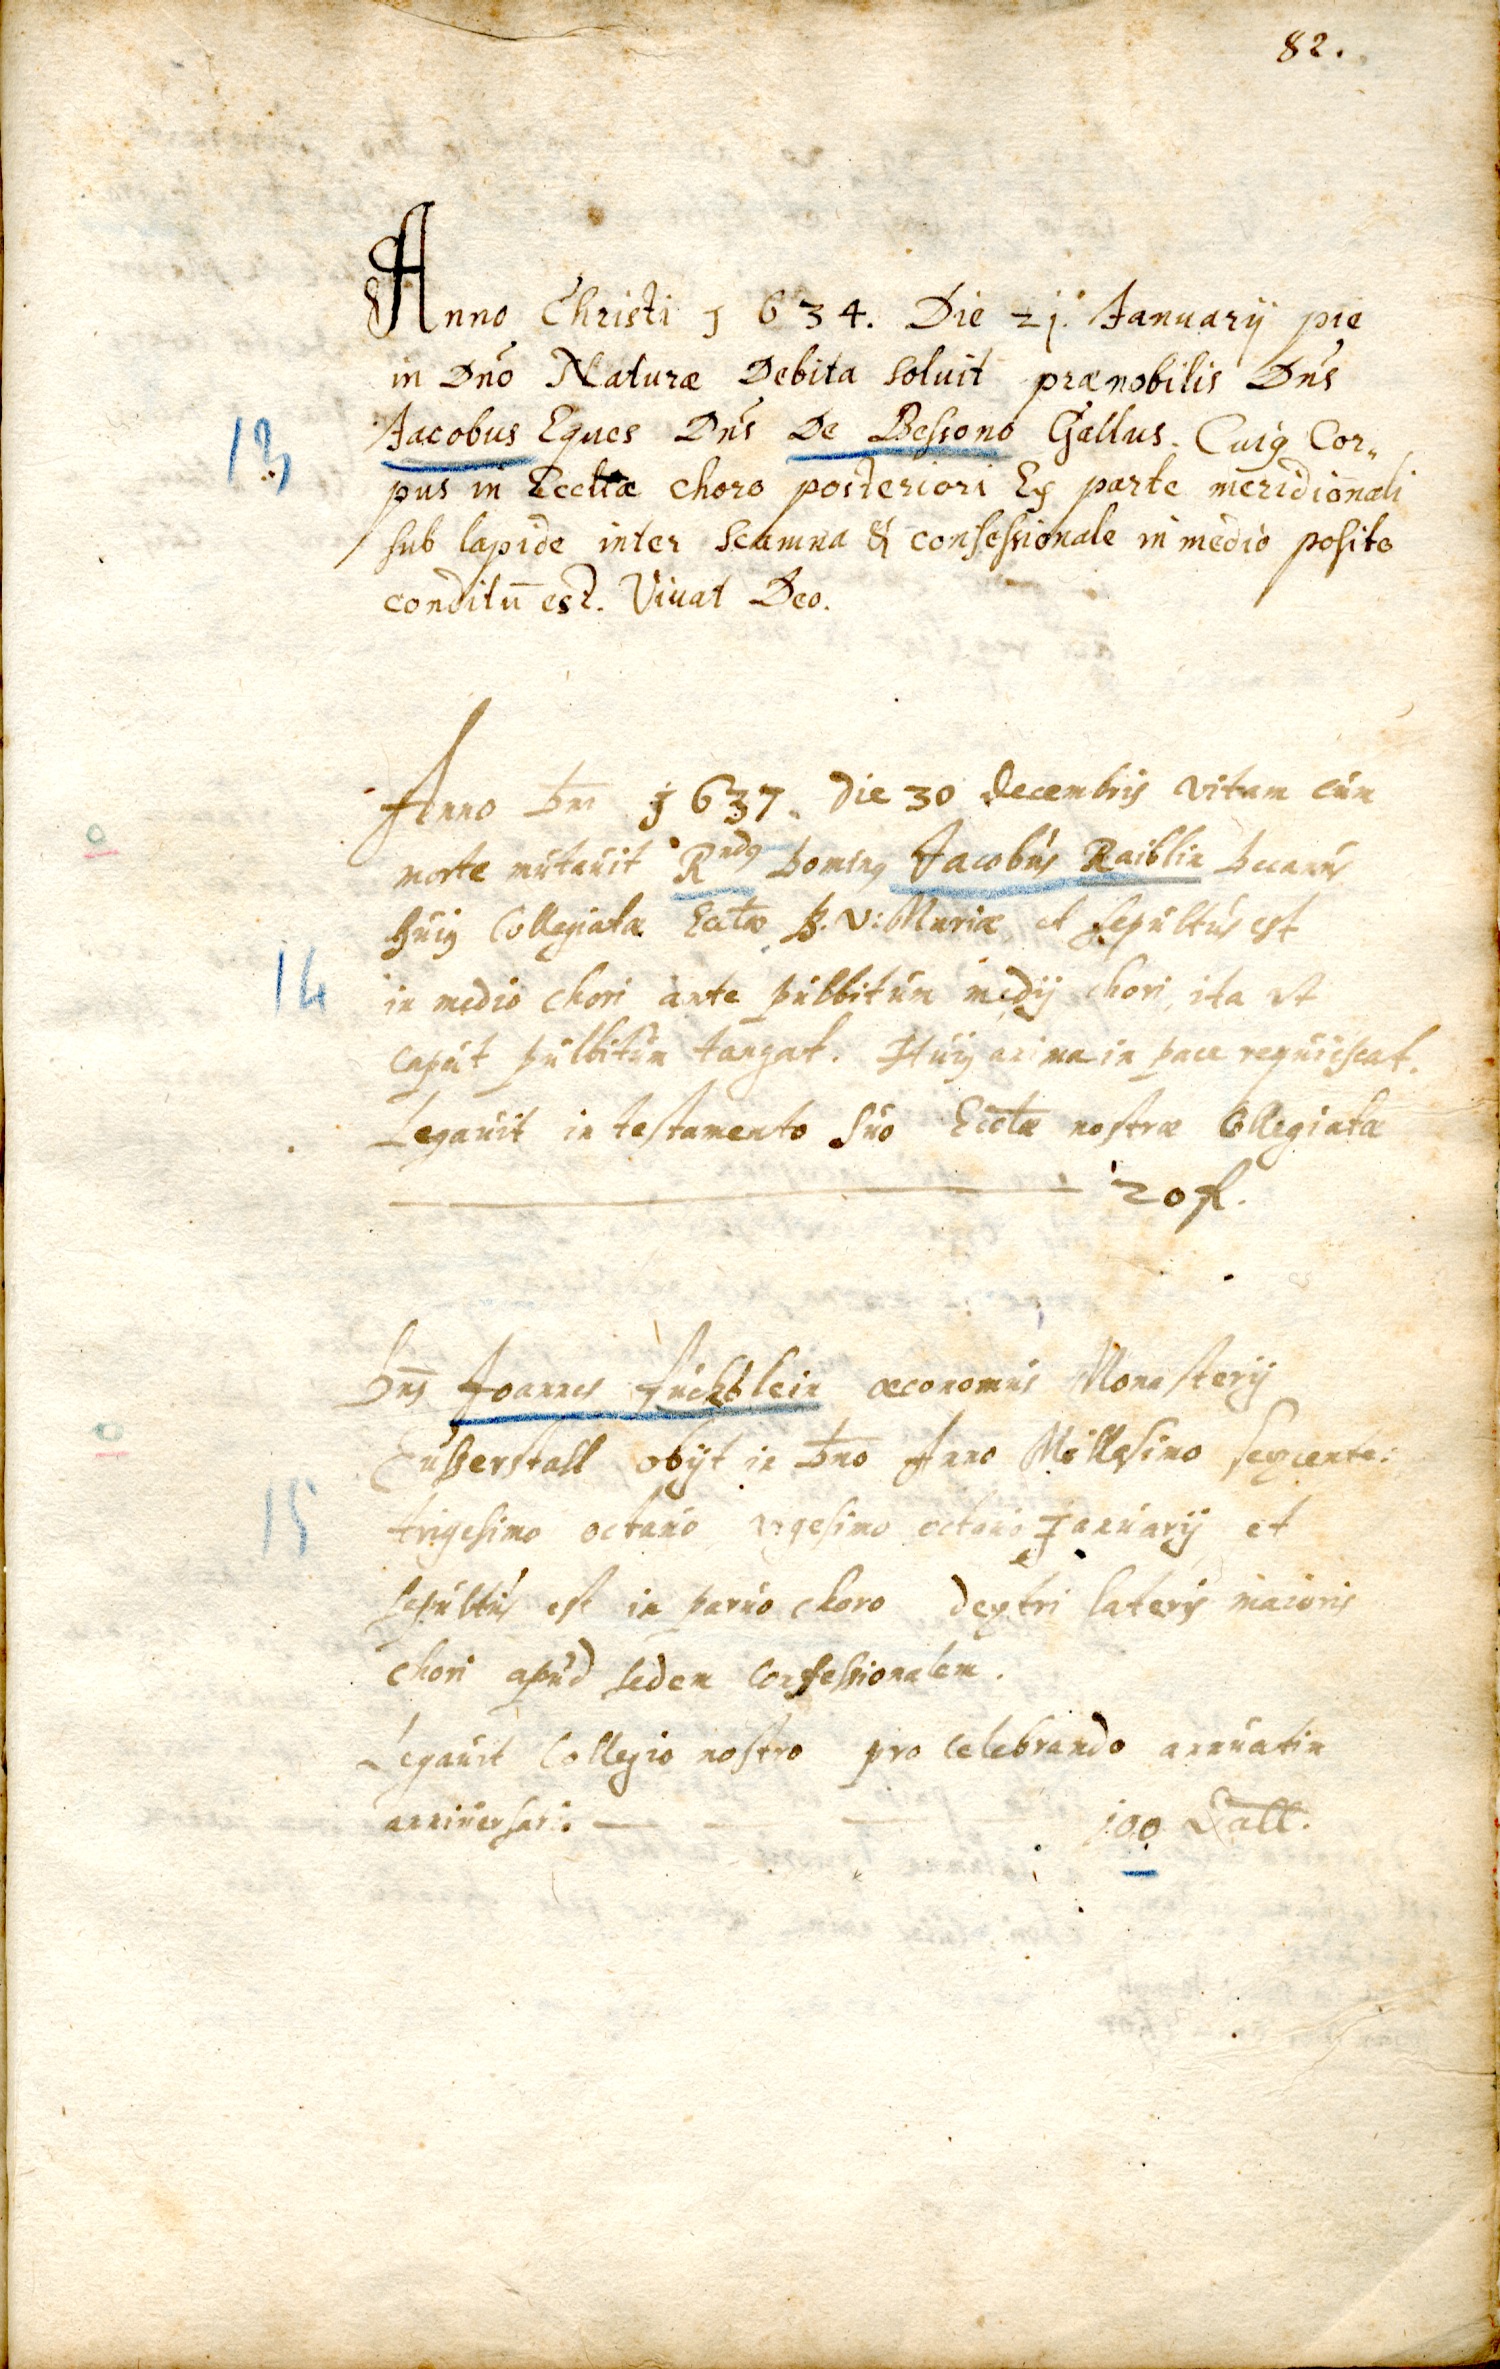 82.
Anno Christi 1634. Die 21. January pie
in Dno Naturæ Debita soluit prænobilis Dns
13
Jacobus Eques Dns De Bessono Gallus. Cuiq Cor„
pus in Eccliæ choro posteriori Ex parte meridionali
sub lapide inter scamna & confessionale in medio posito
conditū est. Vivat Deo.
Anno Dni 1637. Die 30 Decembris vitam cum
morte mutavit Rndq Dominq Jacobus Raiblin
huiq Collegiatæ Eccliæ B. V: Mariæ et sepultus est
14
in medio chori ante pulbitum medij chori, ita vt
caput pulbitum tangat. Huiq anima in pace requiescat.
Legavit in testamento suo Eccliæ nostræ Collegiatæ
20 fl.
Dns Joannes Füchßlein œconomus Monasterij
Eußerstall obijt in Dno Anno Millesimo sexcente:
15
trigesimo octavo vigesimo octavo Januarij et
sepultus est in parvo choro dextri lateris maioris
chori apud sedem confessionalem.
Legavit Collegio nostro pro celebrando annuatim
anniversari: 100 Dall.